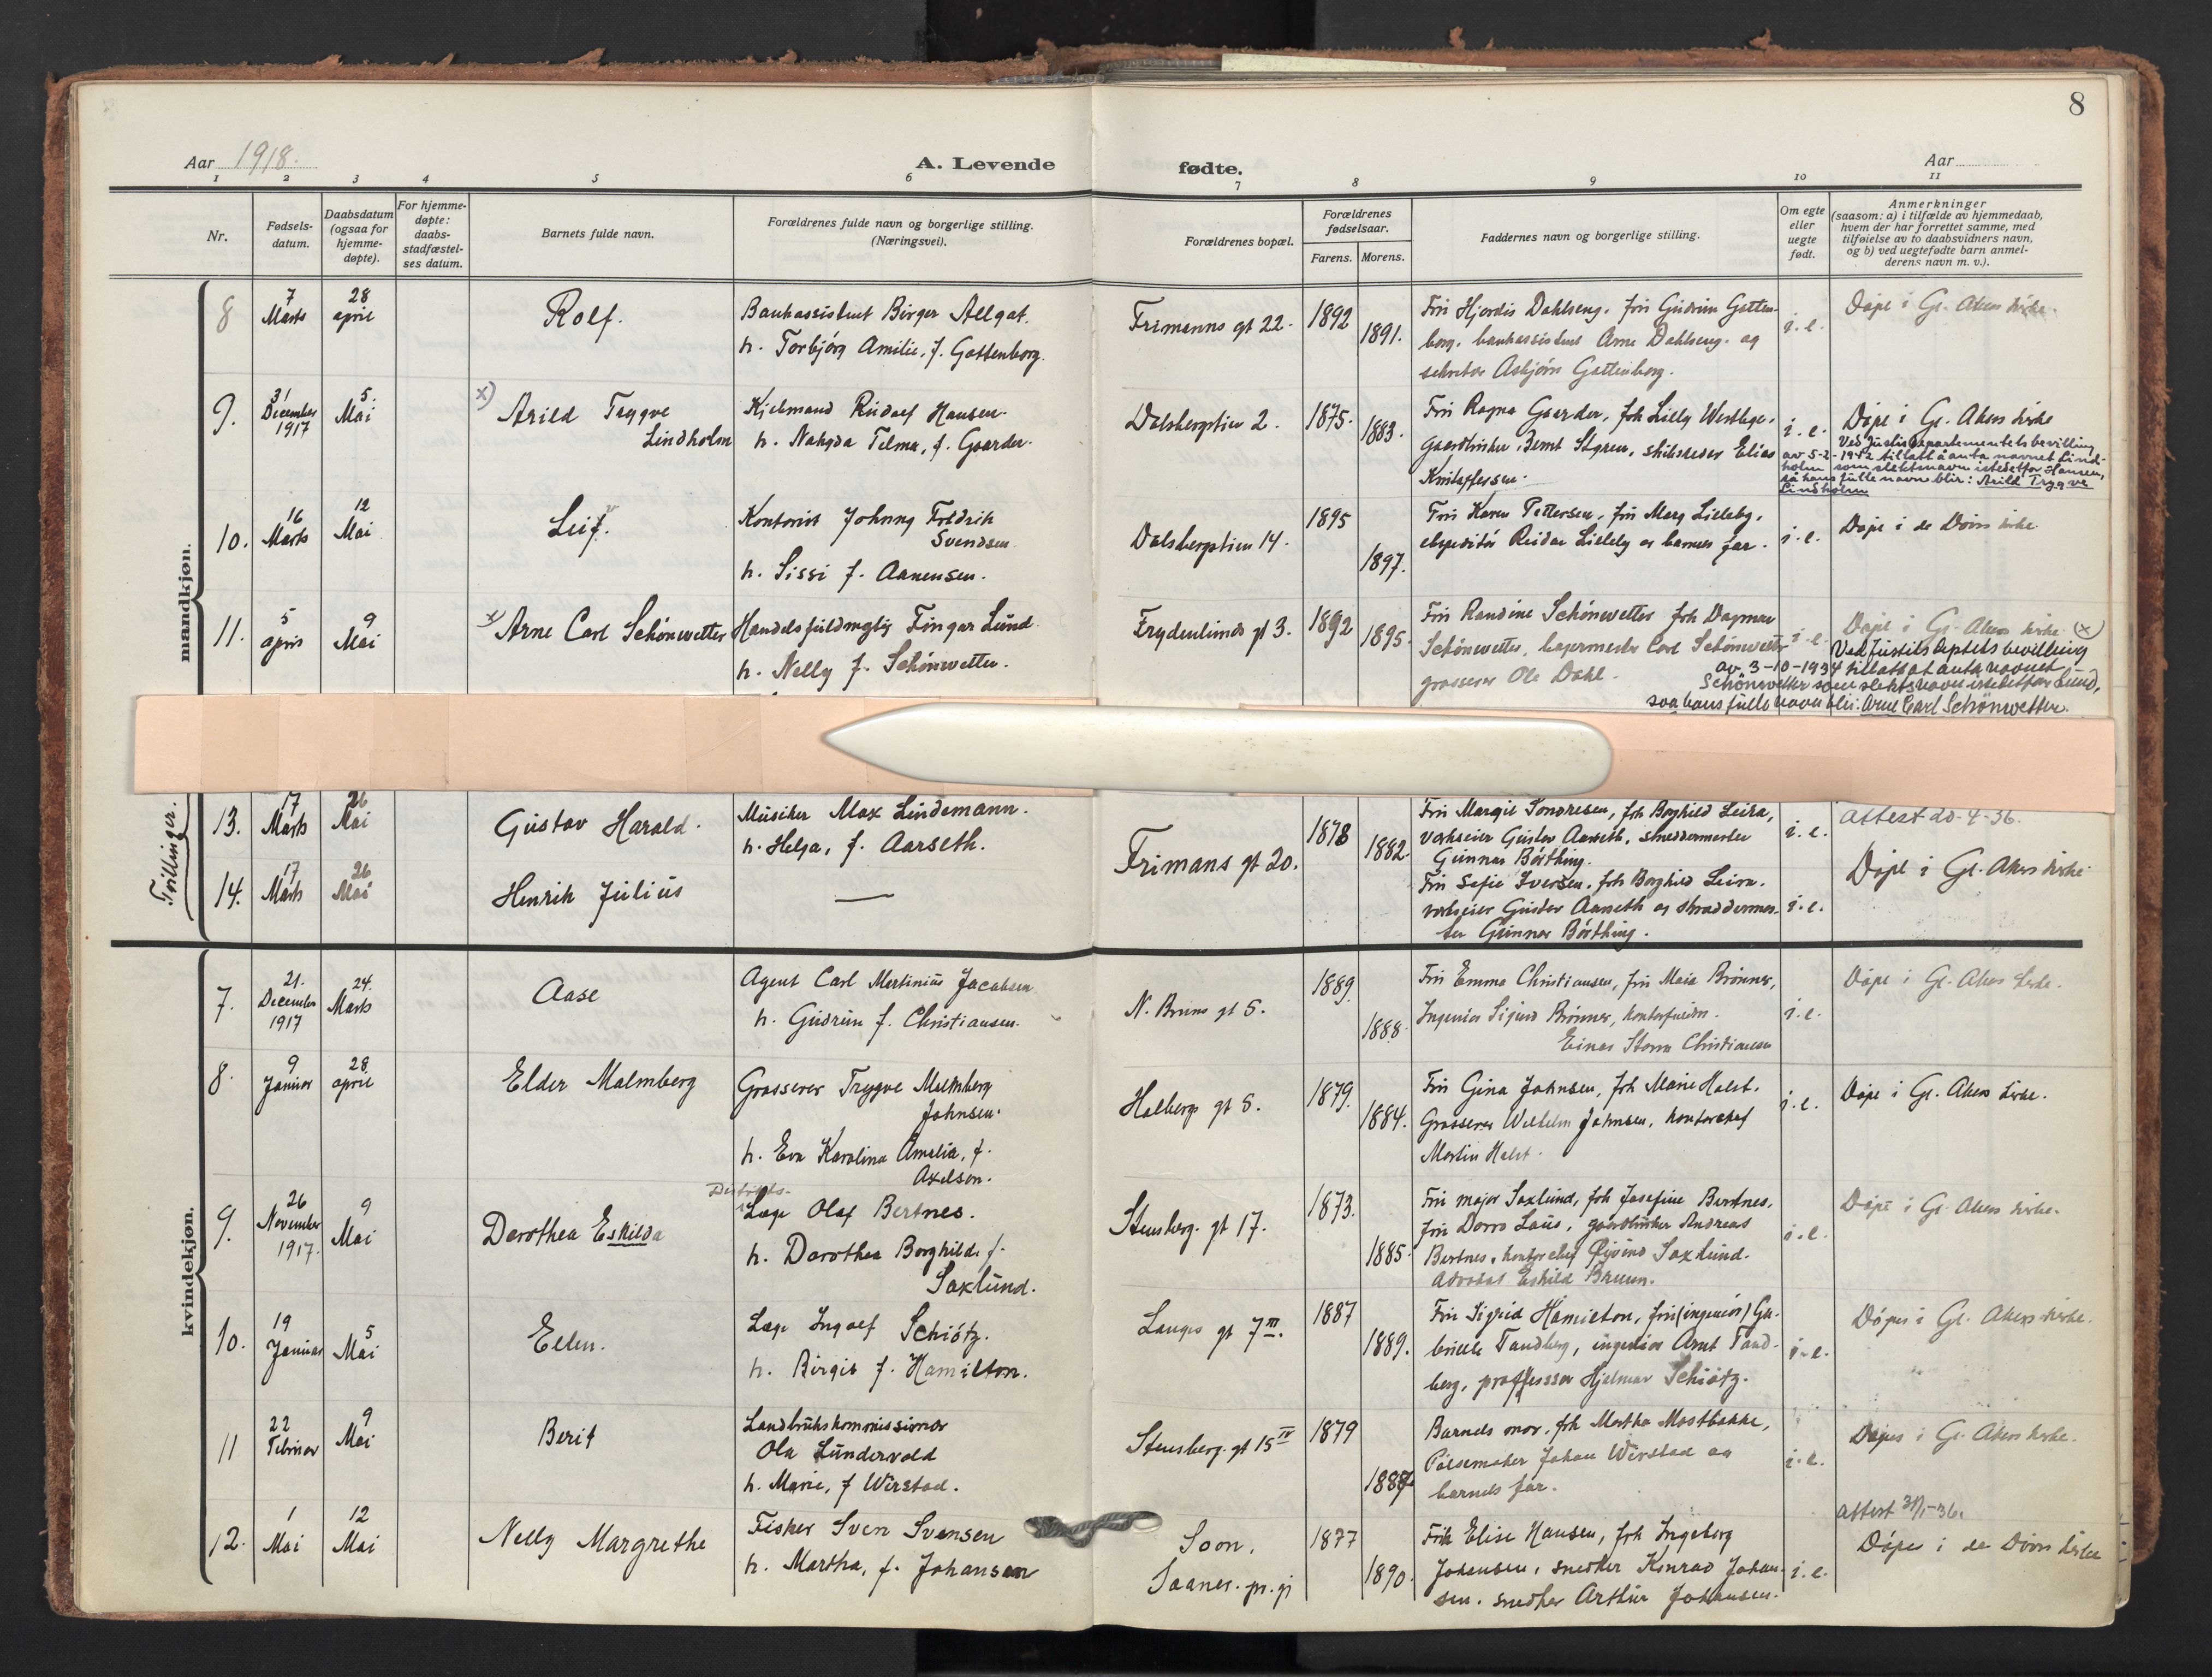 8
Aar 1918.
A. Levende
fødte.
Aar
1
2
3
4
5
6
7
8
9
10
11
Nr.
Fødsels-
datum.
Daabsdatum
(ogsaa for
hjemme-
døpte).
For hjemme-
døpte:
daabs-
stadfæstel-
ses datum.
Barnets fulde navn.
Forældrenes fulde navn og borgerlige stilling.
(Næringsvei).
Forældrenes bopæl.
Forældrenes
fødselsaar.
Farens.
Morens.
Faddernes navn og borgerlige stilling.
Om egte
eller
uegte
født.
Anmerkninger
(saasom: a) i tilfælde av hjemmedaab,
hvem der har forrettet samme, med
tilføielse av to daabsvidners navn,
og b) ved uegtefødte barn anmel-
derens navn m. v.).
mandkjøn.
8
7
Marts
28
april
Rolf.
Bankassistent Birger
h. Torbjörg Amilie, f. Gottenborg.
Frimanns gt 22.
1892
1891.
Fru Hjordis Dahlseng. fru Gudrun Gotten-
borg, bankassistent Arne Dahlseng. og
Asbjørn Gottenborg.
i. e.
Døpt i Gl. Akers kirke.
9.
31
December
1917
5.
Mai
x)
Arild Trygve
Lindholm
Rudolf Hansen.
h. Telma, f. Gaarder.
Dalsbergstien 2.
1875.
1883.
Fru Ragna Gaarder, frk Lilly
skibsreder Elias
i. e.
Døpt i Gl. Akers kirke
Ved Justisdepartementets bevilling
av 5-2-1942 tillatt å anta navnet Lind-
holm som slektsnavn istedetfor Hansen,
så hans fulle navn blir: Arild Trygve
Lindholm
10.
16
Marts
12
Mai
Leif.
Kontorist Johnny Fredrik
Svendsen
h. Sissi f. Aanensen.
Dalsbergstien 14.
1895
1897.
Fru Karen Pettersen, fru Lilleby.
Reidar Lilleby og barnets far.
i. e.
11.
5
april
9
Mai
x)
Arne Carl Schönwetter
Handelsfuldmægtig Fingar Lund
h. Nelly f. Schönwetter.
Frydenlunds gt 3.
1892
1895.
Fru Randine Schönwetter frk Dagmar
Schönwetter, Carl Schönwetter
grosserer Ole Dahl.
i. e.
Døpt i Gl. Akers kirke x)
Ved Justitsdeptets bevilling
av 3-10-1934 tillatt at anta navnet
Schönwetter som slektsnavn istedetfor Lund,
saa hans fulle navn blir: Arne Carl Schönwetter.
Tvillinger.
13.
17
Marts
26
Mai
Gustav Harald.
Musiker Max Lindemann.
h. Helga, f. Aarseth.
Frimans gt 20.
1878
1882.
Fru Margit Sondresen, frk Borghild Leira,
verkseier Gustav Aarseth, skreddermester
Gunnar Börthing.
i. e.
attest 20-4-36.
14.
17
Marts
26
Mai
Henrik Julius
—
Fru Sofie Iversen, frk Borghild Leira.
verkseier Gustav Aarseth og skreddermes-
ter Gunnar Börthing.
i. e.
Døpt i Gl. Akers kirke
kvindekjøn.
7.
21.
December
1917
24.
Marts
Aase
Agent Carl Martinius Jacobsen
h. Gudrun f. Christiansen.
N. Bruns gt 5.
1889
1888.
Fru Emma Christiansen, fru Maia Brönner,
Ingeniør Sigurd Brönner,
Einar Storm Christiansen
i. e.
Døpt i Gl. Akers kirke.
8.
9
Januar
28
april
Elder Malmberg
Grosserer Trygve Malmberg
Johnsen.
h. Eva Karolina Amalia, f.
Axelson.
Holbergs gt 5.
1879.
1884.
Fru Gina Johnsen, frk Marie Holst.
Grosserer Wilhelm Johnsen, kontorchef
Martin Holst.
i. e.
Døpt i Gl. Akers kirke.
9.
26
November
1917.
9
Mai
Dorothea Eskilda
Distrikts-
Læge Olaf Bertnes.
h. Dorothea Borghild, f.
Saxlund.
Stensberg. gt 17.
1873.
1885.
Fru major Saxlund, frk Josefine Bertnes.
fru Dorro Laus, gaardbruker Andreas
Bertnes, kontorchef Øjvind Saxlund.
Advokat Eskild Bruun.
i. e.
Døpt i Gl. Akers kirke.
10.
19
Januar
5
Mai
Ellen.
Læge Ingolf Schiötz.
h. Birgit f. Hamilton.
Langes gt 7 III.
1887
1889.
Fru Sigrid Hamilton, fru (ingeniör) Ga-
brielle Tandberg, ingeniör Arnt Tand-
berg, proffessor Hjalmar Schiötz.
i. e.
Döpt i Gl. Akers kirke.
11
22
Februar
9
Mai
Berit
Landbrukskommissionær
Ola Lundervold
h. Marie, f Wirstad.
Stensberg. gt 15 IV
1879
Barnets mor, frk Martha Mostbakke,
Pölsemaker Johan Wirstad og
barnets far.
i. e.
Døpt i Gl. Akers kirke.
12.
1
Mai
12
Mai
Nelly Margrethe
Fisker Sven Svensen
h. Martha, f. Johansen
Soon.
Saaner. pr. gj
1877
1890.
Frk Elise Hansen, frk Ingeborg
Johansen, snedker Konrad Johan-
sen. snedker Arthur Johansen.
i. e.
attest 31/1-36.